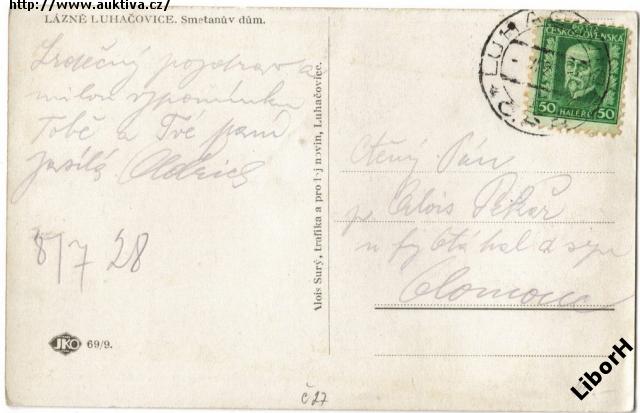 http://www.auktiva.cz/
LÁZNĚ LUHAČOVICE. Smetanův dům.
Srdečný pozdrav a
milou vzpomínku
Tobě a Tvé paní
zasílá Oldřich
8/7 28
JKO 69/9.
Alois Surý, trafika a prodej novin, Luhačovice.
LUHAČO
ČESKOSLOVENSKÁ
50 HALÉŘŮ 50
Ctěný Pán
p. Alois Pekař
u fy Otáhal a syn
Olomouc
č 27
LiborH